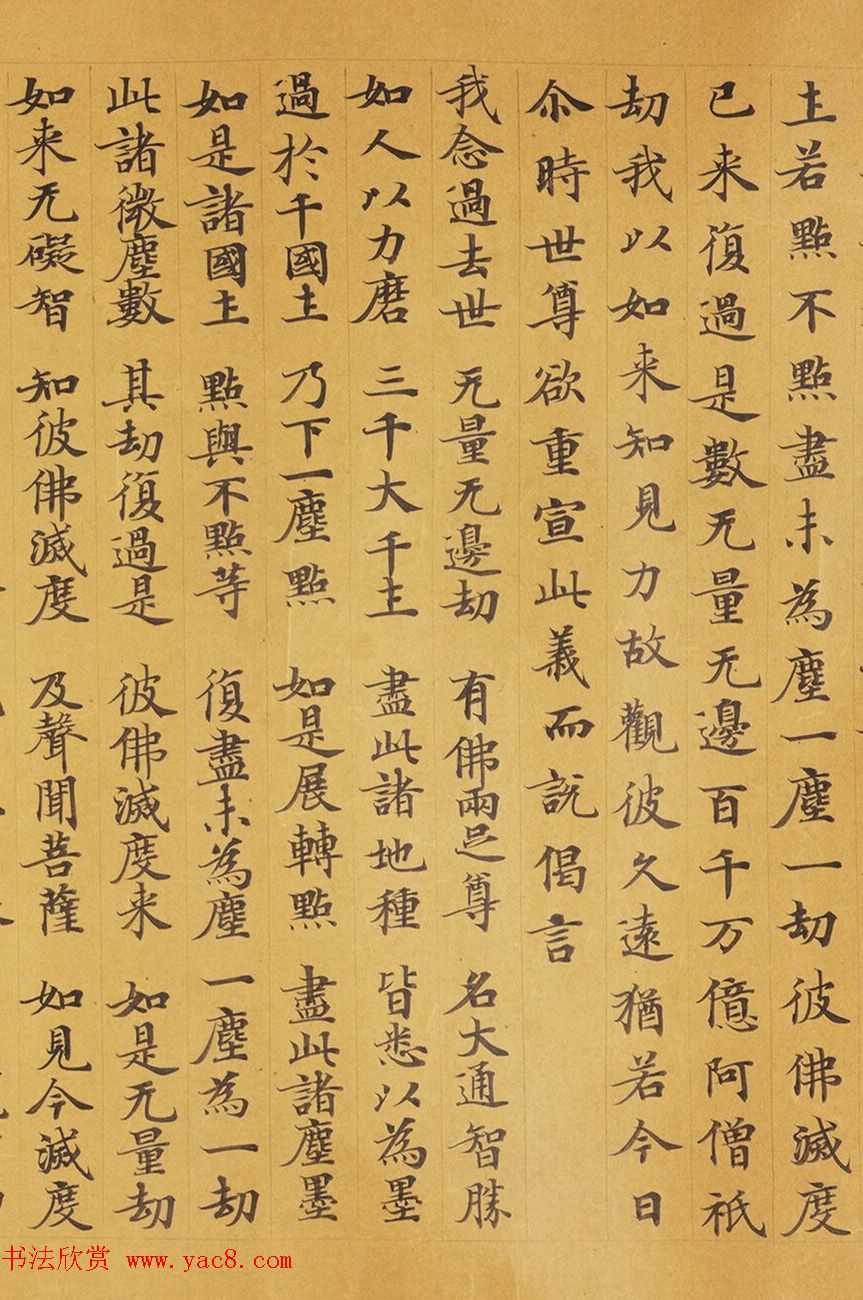 土若點不點盡末為塵一塵一劫彼佛滅度
已来復過是數无量无邊百千万億阿僧祇
劫我以如来知見力故觀彼久遠猶若今日
尒時世尊欲重宣此義而說偈言
我念過去世 无量无邊劫 有佛兩足尊 名大通智勝
如人以力磨 三千大千土 盡此諸地種 皆悉以為墨
過於千國土 乃下一塵點 如是展轉點 盡此諸塵墨
如是諸國土 點與不點等 復盡末為塵 一塵為一劫
此諸微塵數 其劫復過是 彼佛滅度来 如是无量劫
如来无礙智 知彼佛滅度 及聲聞菩薩 如見今滅度
书法欣赏 www.yac8.com